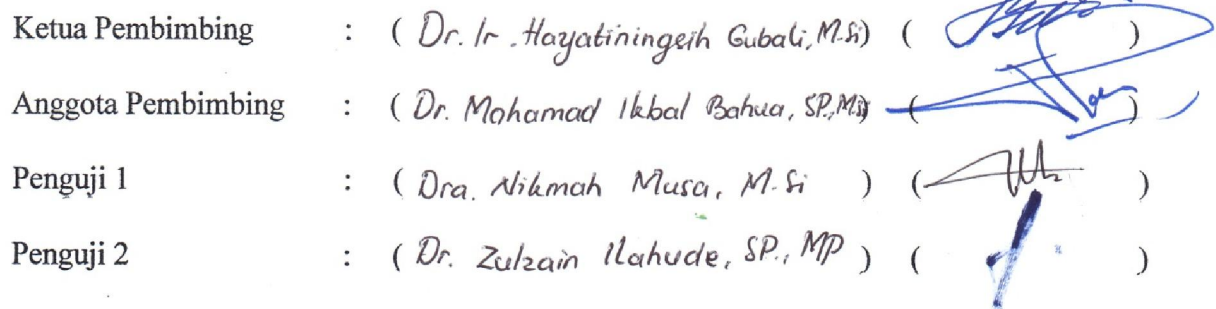 Ketua Pembimbing : ( Dr. Ir. Hayatiningsih Gubali, M.Si) ( )
Anggota Pembimbing : ( Dr. Mohamad Ikbal Bahua, SP., M.Si) ( )
Penguji 1 : ( Dra. Nikmah Musa, M.Si ) ( )
Penguji 2 : ( Dr. Zulzain Ilahude, SP., MP ) ( )